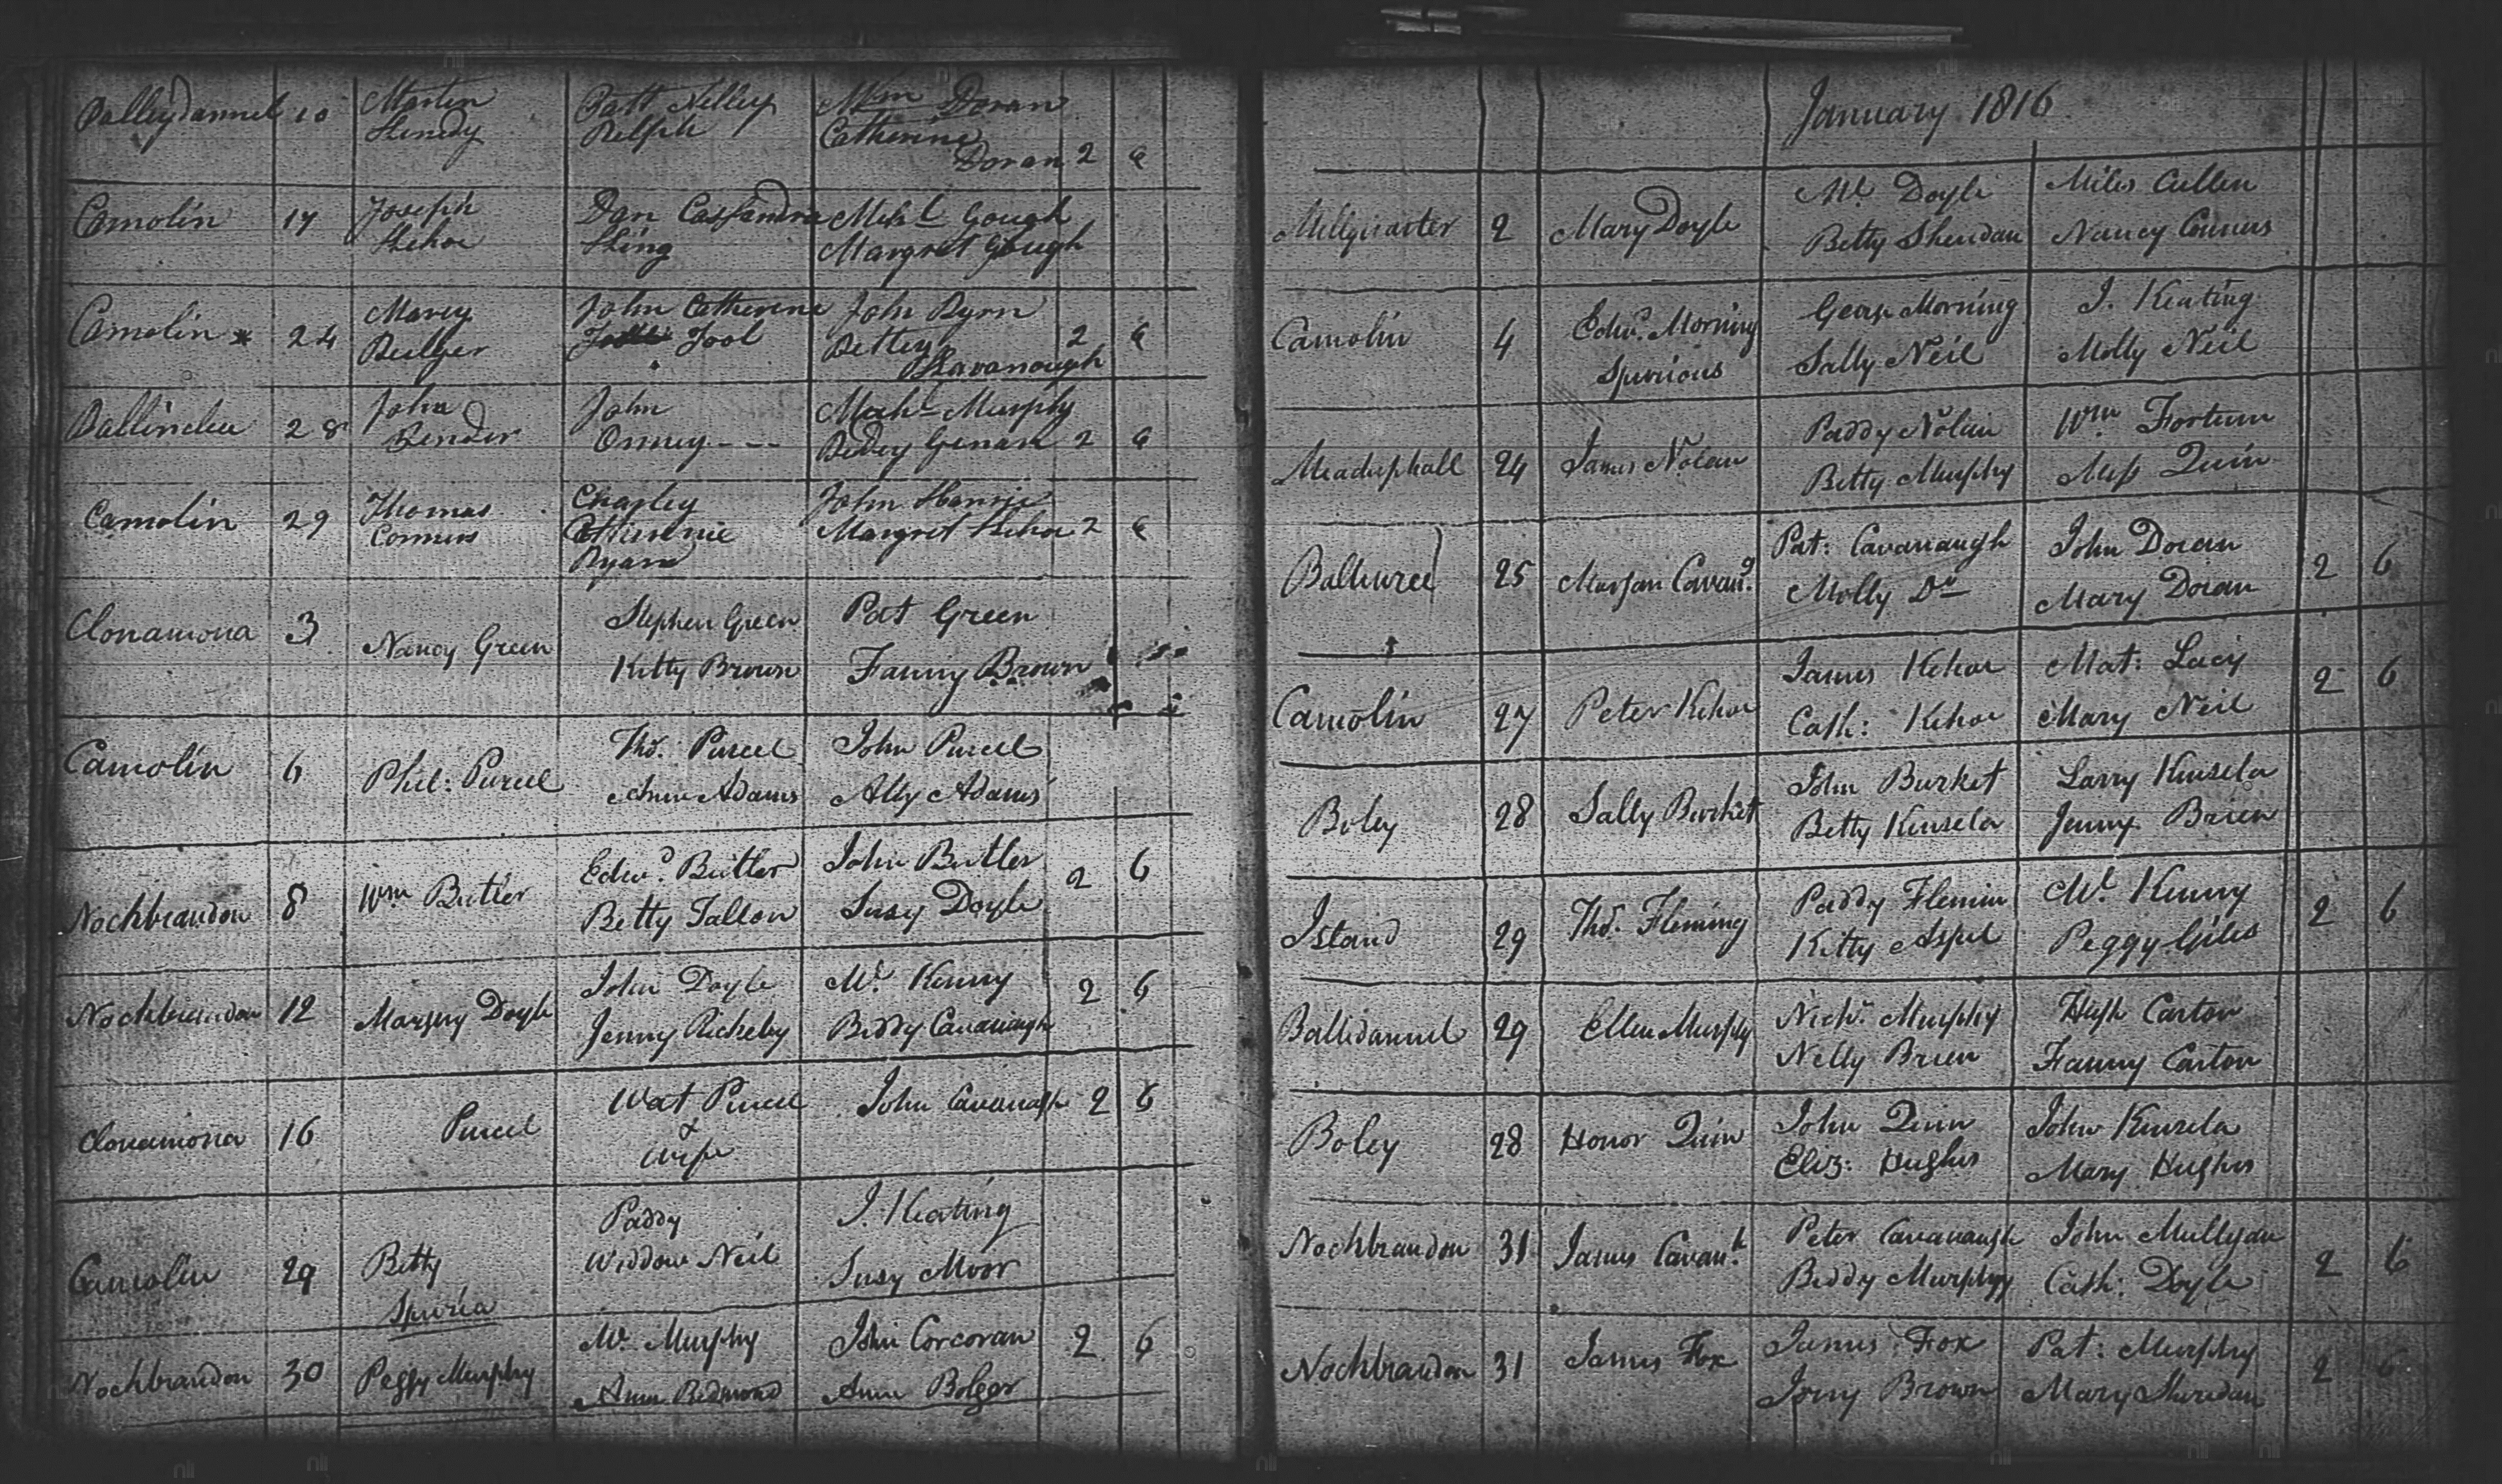 Balleydannel 10 Martin Patt Nelley Wm Doran
Kenedy Relph Catherine
Doran 2 6
Camolin 17 Joseph Dan Cassandra Michl Gough
Kehoe King Margret Gough
Camolin * 24 Marey John Catherine John Byrn
Bulger Tool Bettey 2 6
Kavanough
28 John John Michl Murphy
Bender Onney --- Bedey 2 6
Camolin 29 Thomas Charley John
Conners Margret Kehoe 2 6
Ryan
Clonamona 3 Nancy Green Stephen Green Pat Green
Kitty Brown Fanny Brown
Camolin 6 Phil: Purcel Thos. Purcel John Purcel
Anne Adams Ally Adams
Nochbrandon 8 Wm Butler Edwd. Butler John Butler 2 6
Betty Tallon Susy Doyle
Nochbrandon 12 Margery Doyle John Doyle Ml. Kenny 2 6
Jenny Rickeby Biddy Cavanaugh
Clonamona 16 Purcel Wat Purcel John Cavanagh 2 6
&
Wife
Camolin 29 Betty Paddy J. Keating
Spuria Widdow Neil Susy Moor
Nochbrandon 30 Peggy Murphy Ml. Murphy John Corcoran 2 6
Ann Redmond Ann Bolger
January 1816
Millquarter 2 Mary Doyle Ml. Doyle Miles Cullen
Betty Sheridan Nancy Connors
Camolin 4 Edwd. Morning George Morning J. Keating
Spurious Sally Neil Molly Neil
Meaduphall 24 James Nolan Paddy Nolan Wm Fortune
Betty Murphy Miss Quin
25 Cavang. Pat: Cavanaugh John Doran 2 6
Molly Do Mary Doran
Camolin 27 Peter Kehoe James Kehoe Mat: Lacy 2 6
Cath: Kehoe Mary Neil
Boley 28 Sally Burket John Burket Larry Kinsela
Betty Kinsela Jenny Brien
Island 29 Thos. Fleming Paddy Flemin Ml. Kenny 2 6
Kitty Aspel Peggy Giles
Ballidannel 29 Ellen Murphy Nichs. Murphy Hugh Carton
Nelly Brien Fanny Carton
Boley 28 Honor Quin John Quin John Kinsela
Eliz: Hughes Mary Hughes
Nochbrandon 31 James Cavanh. Peter Cavanaugh John Mullygan 2 6
Biddy Murphy Cath: Doyle
Nochbrandon 31 James Fox James Fox Pat: Murphy 2 6
Jony Brown Mary Sheredan